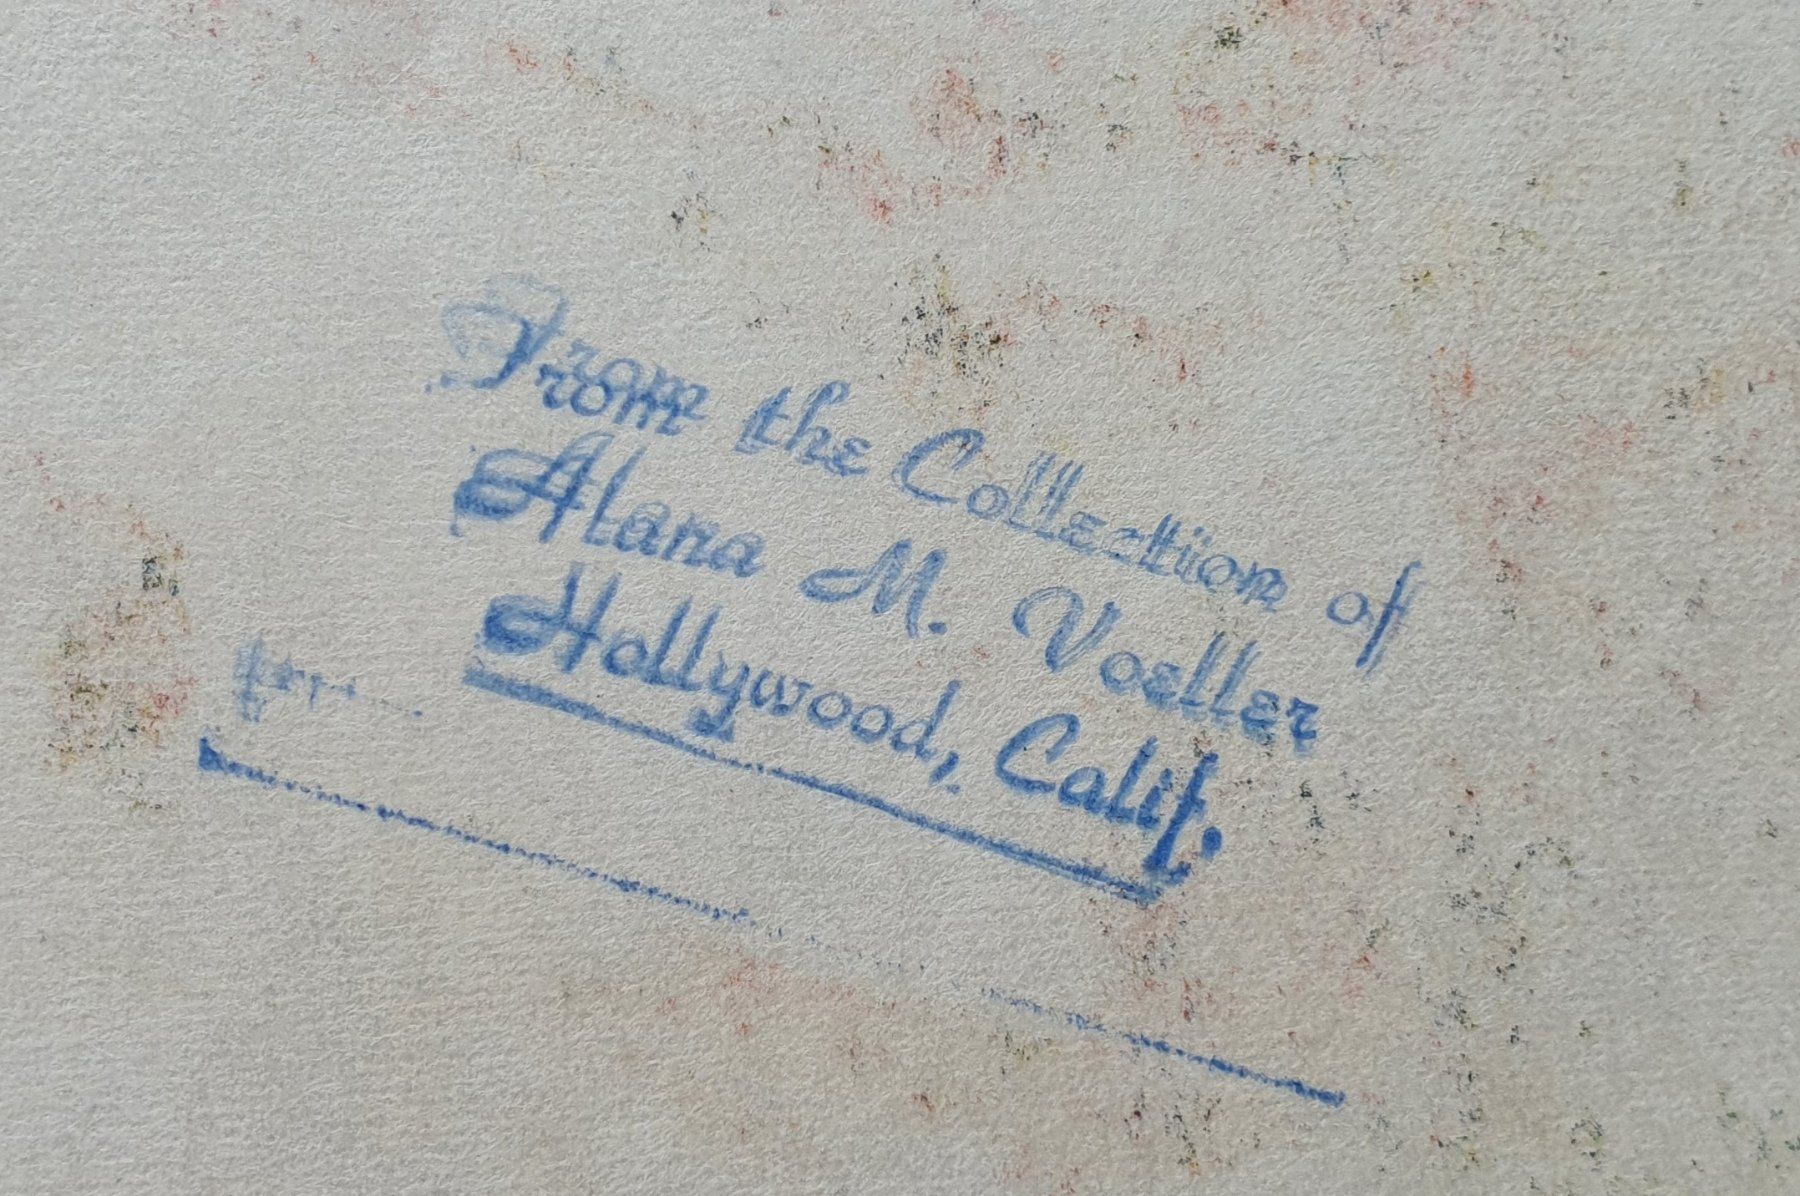 From the Collection of
Alana M. Voeller
Hollywood, Calif.